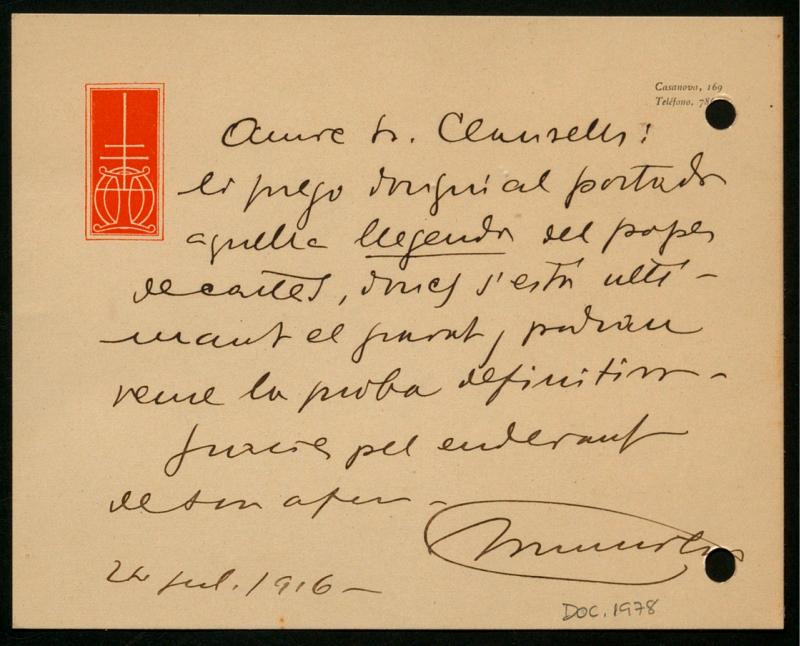 Casanova, 169
Teléfono, 78
Amic Sr. Clausells:
li prego dongui al portador
aquella llegenda del paper
de cartes, doncs s'està ulti-
mant el gravat, y podriau
veure la proba definitiva-
Gracies pel endevant
de son afm-
24 jul. 1916-
DOC. 1978